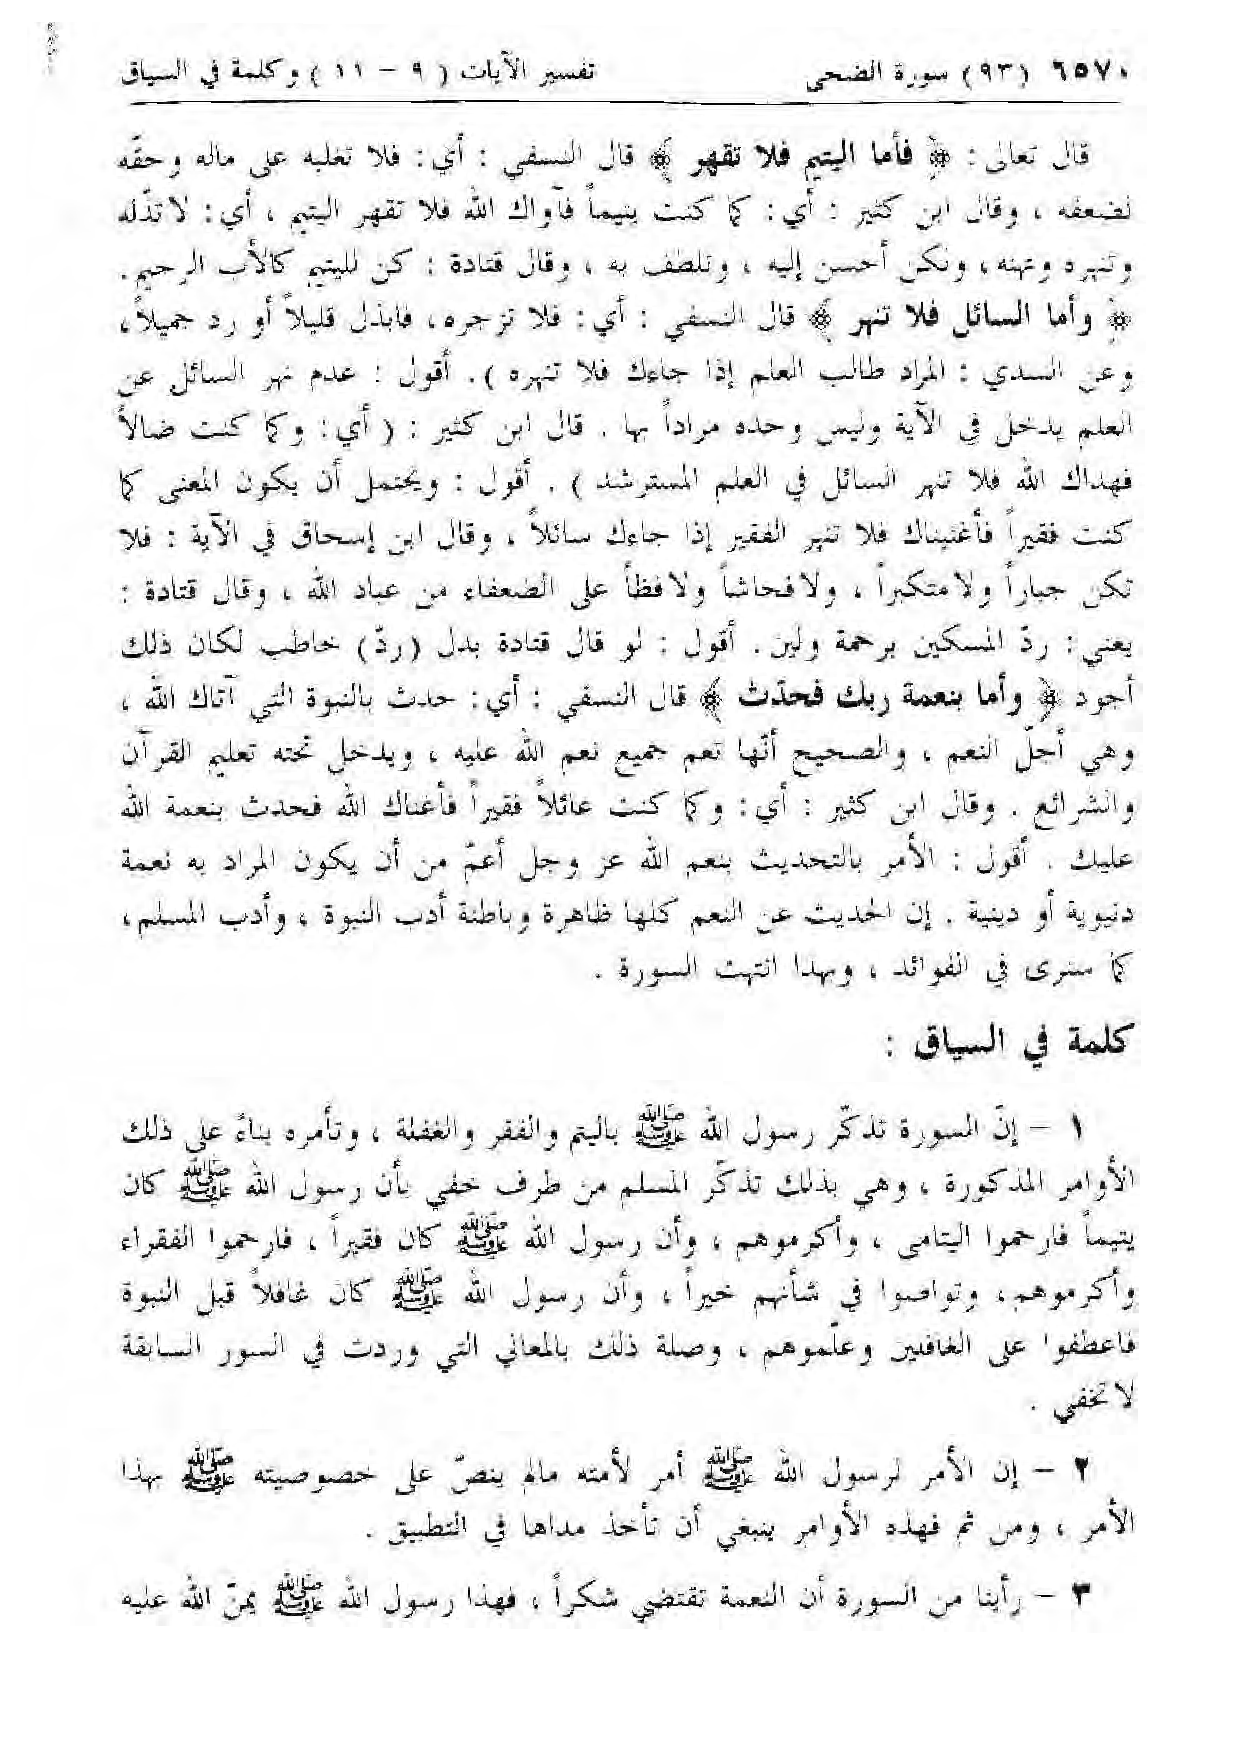 ٦٥٧٠ (٩٣) سورة الضحى تفسير الآيات ( ٩ - ١١ ) وكلمة في السياق
قال تعالى : ﴿ فأما اليتيم فلا تقهر ﴾ قال النسفي : أي : فلا تغلبه على ماله وحقّه
لضعفه ، وقال ابن كثير : أي : كما كنت يتيماً فآواك الله فلا تقهر اليتيم ، أي : لا تذلّه
وتنهره وتهنه، ولكن أحسن إليه ، وتلطف به ، وقال قتادة : كن لليتيم كالأب الرحيم .
﴿ وأما السائل فلا تنهر ﴾ قال النسفي : أي : فلا تزجره ، فابذل قليلاً أو رد جميلاً ،
وعن السدي : المراد طالب العلم إذا جاءك فلا تنهره ) . أقول : عدم نهر السائل عن
العلم يدخل في الآية وليس وحده مراداً بها . قال ابن كثير : ( أي : وكما كنت ضالاً
فهداك الله فلا تنهر السائل في العلم المسترشد ) . أقول : ويحتمل أن يكون المعنى كما
كنت فقيراً فأغنيناك فلا تنهر الفقير إذا جاءك سائلاً ، وقال ابن إسحاق في الآية : فلا
تكن جباراً ولا متكبراً ، ولا فحاشاً ولا فظاً على الضعفاء من عباد الله ، وقال قتادة :
يعني : ردّ المسكين برحمة ولين . أقول : لو قال قتادة بدل (ردّ) خاطب لكان ذلك
أجود ﴿ وأما بنعمة ربك فحدّث ﴾ قال النسفي : أي : حدث بالنبوة التي آتاك الله ،
وهي أجلّ النعم ، والصحيح أنّها تعم جميع نعم الله عليه ، ويدخل تحته تعليم القرآن
والشرائع . وقال ابن كثير : أي : وكما كنت عائلاً فقيراً فأغناك الله فحدث بنعمة الله
عليك . أقول : الأمر بالتحديث بنعم الله عز وجل أعمّ من أن يكون المراد به نعمة
دنيوية أو دينية . إن الحديث عن النعم كلها ظاهرة وباطنة أدب النبوة ، وأدب المسلم ،
كما سنرى في الفوائد ، وبهذا انتهت السورة .
كلمة في السياق :
١ - إنّ السورة تذكّر رسول الله ﷺ باليتم والفقر والغفلة ، وتأمره بناءً على ذلك
الأوامر المذكورة ، وهي بذلك تذكّر المسلم من طرف خفي بأن رسول الله ﷺ كان
يتيماً فارحموا اليتامى ، وأكرموهم ، وأن رسول الله ﷺ كان فقيراً ، فارحموا الفقراء
وأكرموهم ، وتواصوا في شأنهم خيراً ، وأن رسول الله ﷺ كان غافلاً قبل النبوة
فاعطفوا على الغافلين وعلّموهم ، وصلة ذلك بالمعاني التي وردت في السور السابقة
لا تخفي .
٢ - إن الأمر لرسول الله ﷺ أمر لأمته مالم ينصّ على خصوصيته ﷺ بهذا
الأمر ، ومن ثم فهذه الأوامر ينبغي أن تأخذ مداها في التطبيق .
٣ - رأينا من السورة أن النعمة تقتضي شكراً ، فهذا رسول الله ﷺ يمنّ الله عليه